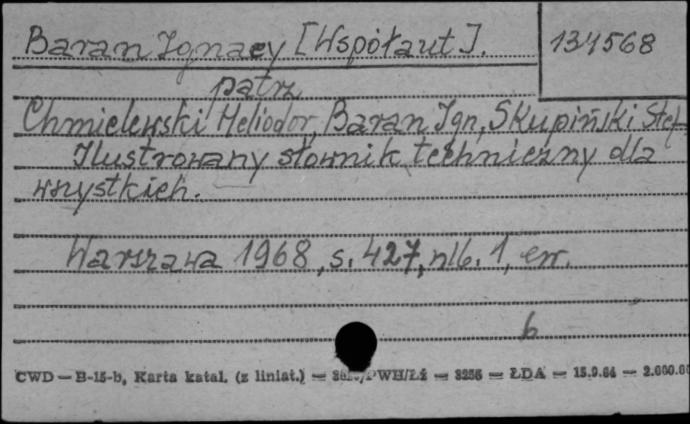 Baran Ignacy [Współaut]. 131568
patrz
Chmielewski Heliodor, Baran Ign, Skupiński Stef
Ilustrowany słownik techniczny dla
wszystkich.
Warszawa 1968, s. 427, nlb. 1, err.
b
CWD — B-15-b, Karta katal. (z liniat.) — PWH/Łż — 3256 — ŁDA — 15.9.64 — 2.000.00